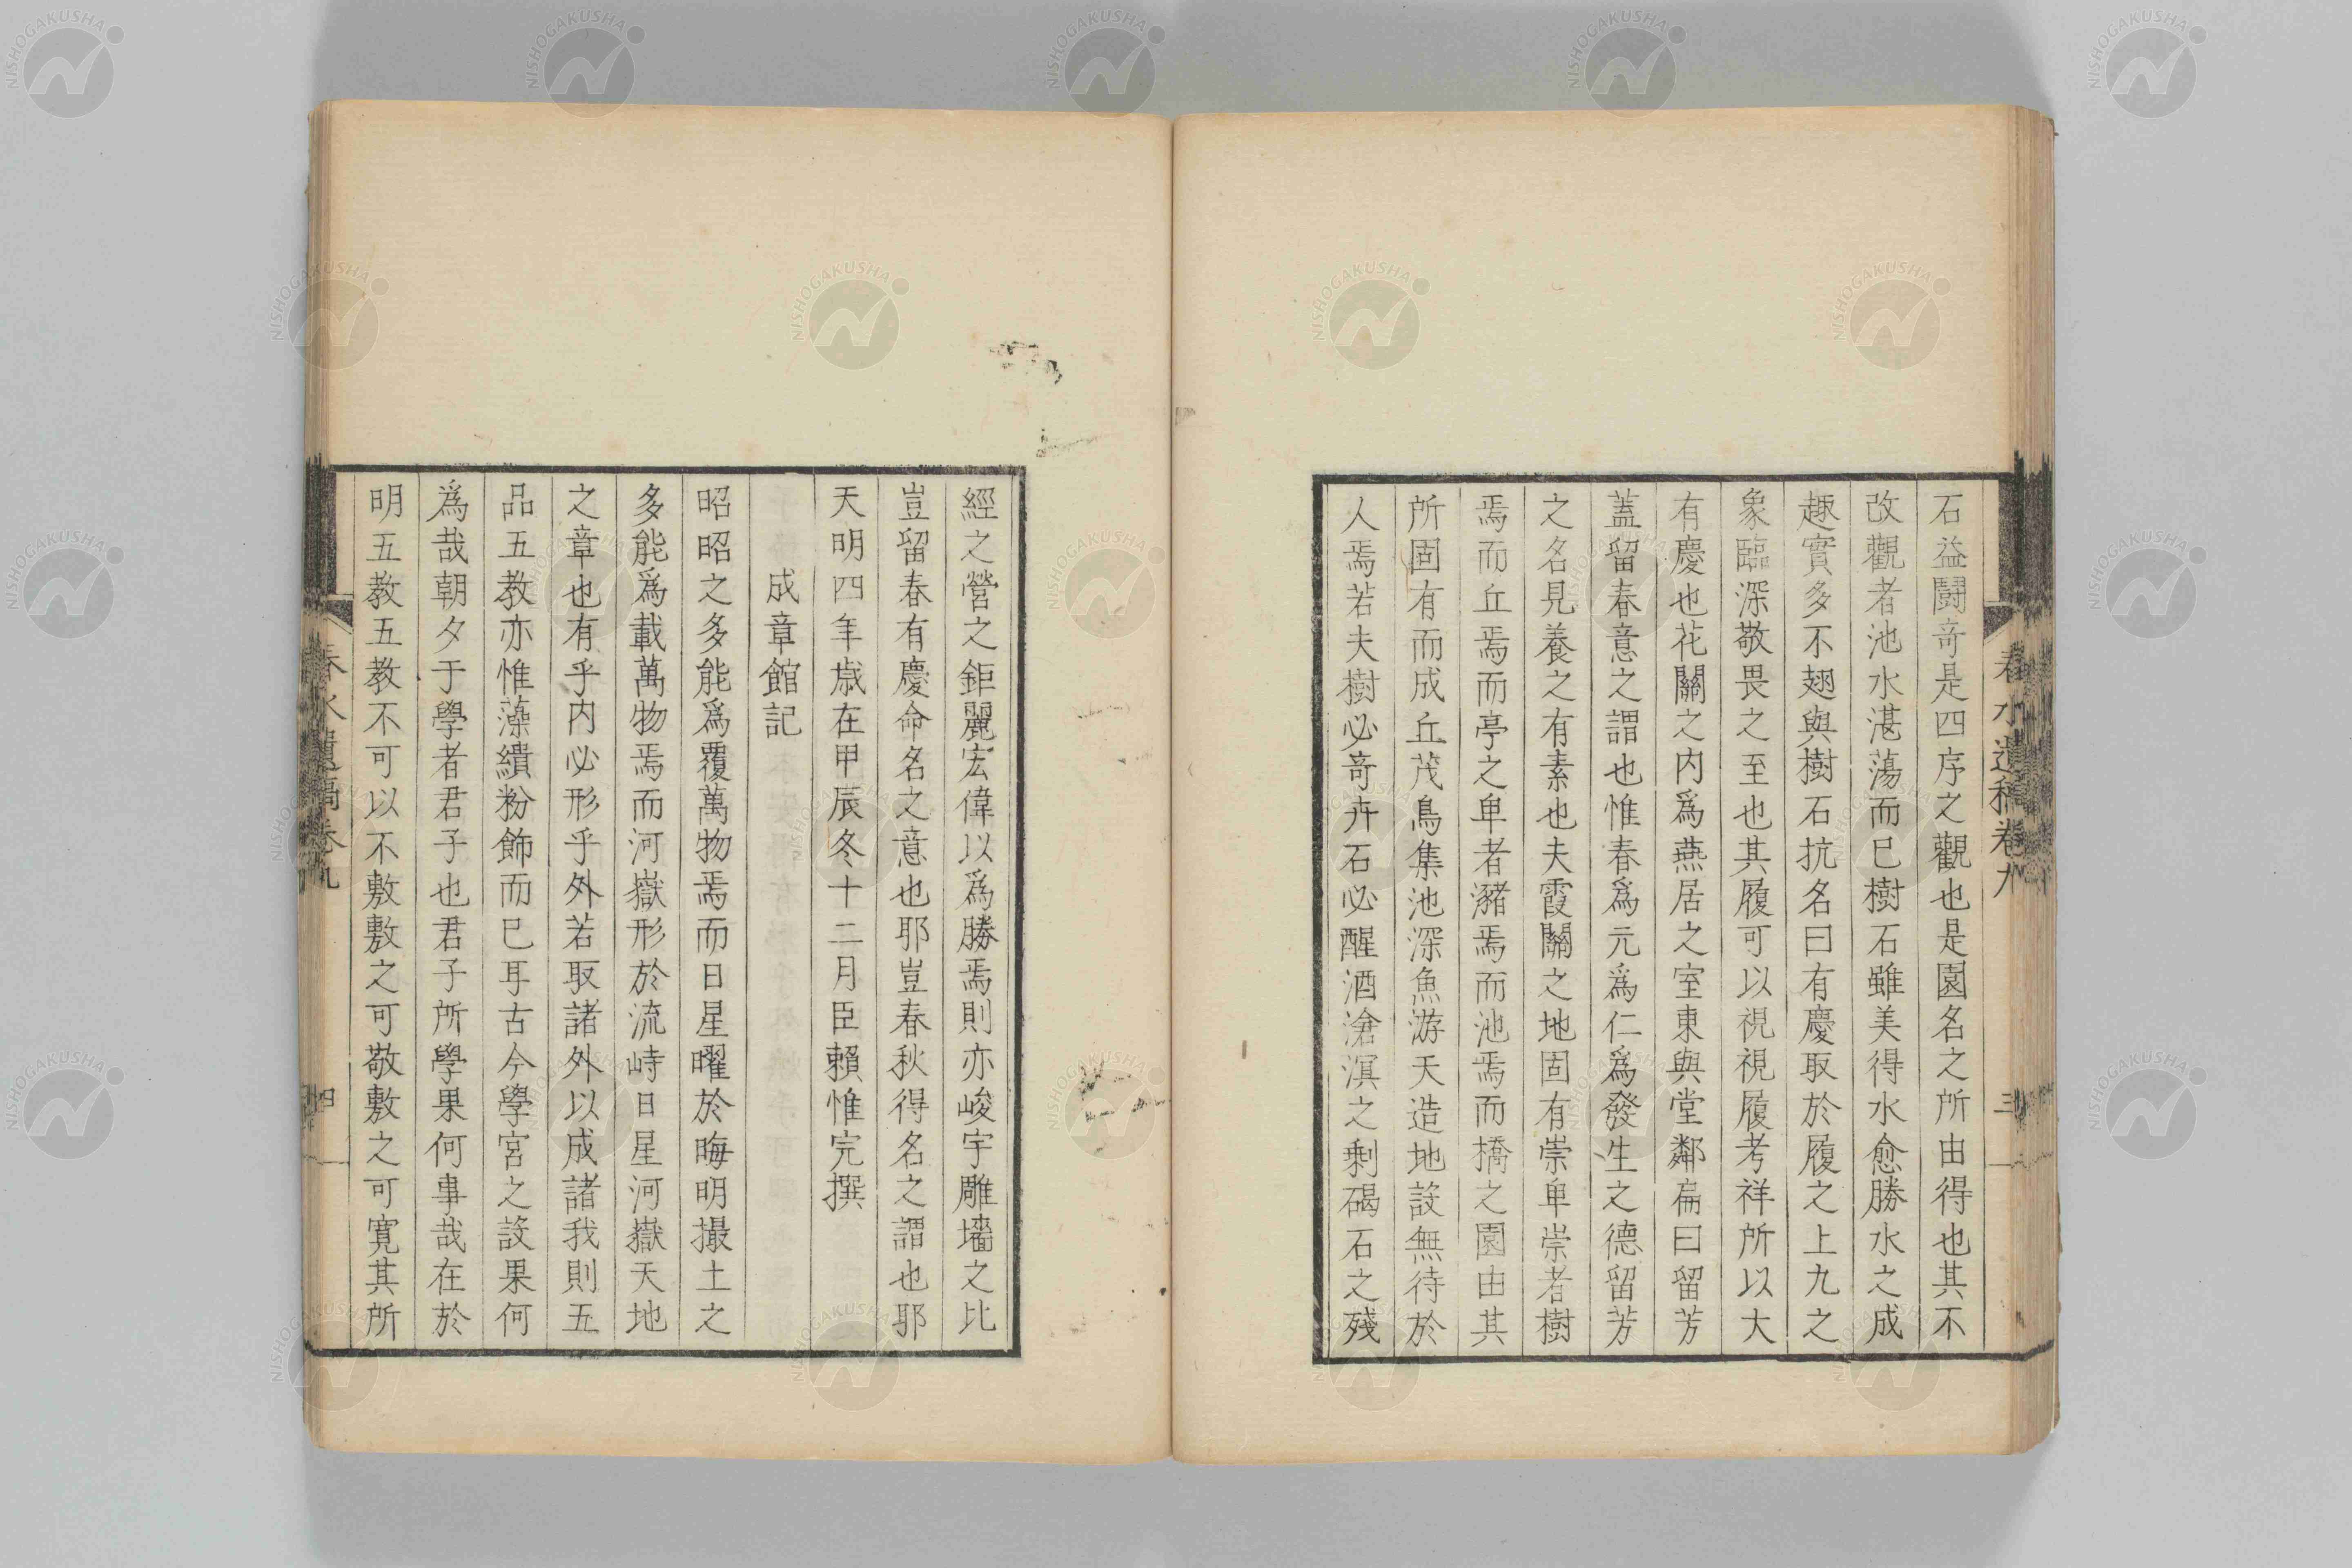 春水遺稿卷九
三
石益鬪奇是四序之觀也是園名之所由得也其不
改觀者池水湛蕩而已樹石雖美得水愈勝水之成
趣實多不翅與樹石抗名曰有慶取於履之上九之
象臨深敬畏之至也其履可以視視履考祥所以大
有慶也花關之内爲燕居之室東與堂鄰扁曰留芳
蓋留春意之謂也惟春爲元爲仁爲發生之德留芳
之名見養之有素也夫霞關之地固有崇卑崇者樹
焉而丘焉而亭之卑者瀦焉而池焉而橋之園由其
所固有而成丘茂鳥集池深魚游天造地設無待於
人焉若夫樹必奇卉石必醒酒滄溟之剩碣石之殘
經之營之鉅麗宏偉以爲勝焉則亦峻宇雕墻之比
豈留春有慶命名之意也耶豈春秋得名之謂也耶
天明四年歳在甲辰冬十二月臣賴惟完撰
成章館記
昭昭之多能爲覆萬物焉而日星曜於晦明撮土之
多能爲載萬物焉而河嶽形於流峙日星河嶽天地
之章也有乎内必形乎外若取諸外以成諸我則五
品五教亦惟藻繢粉飾而已耳古今學宮之設果何
爲哉朝夕于學者君子也君子所學果何事哉在於
明五教五教不可以不敷敷之可敬敷之可寛其所
春水遺稿卷九
四
NISHOGAKUSHA